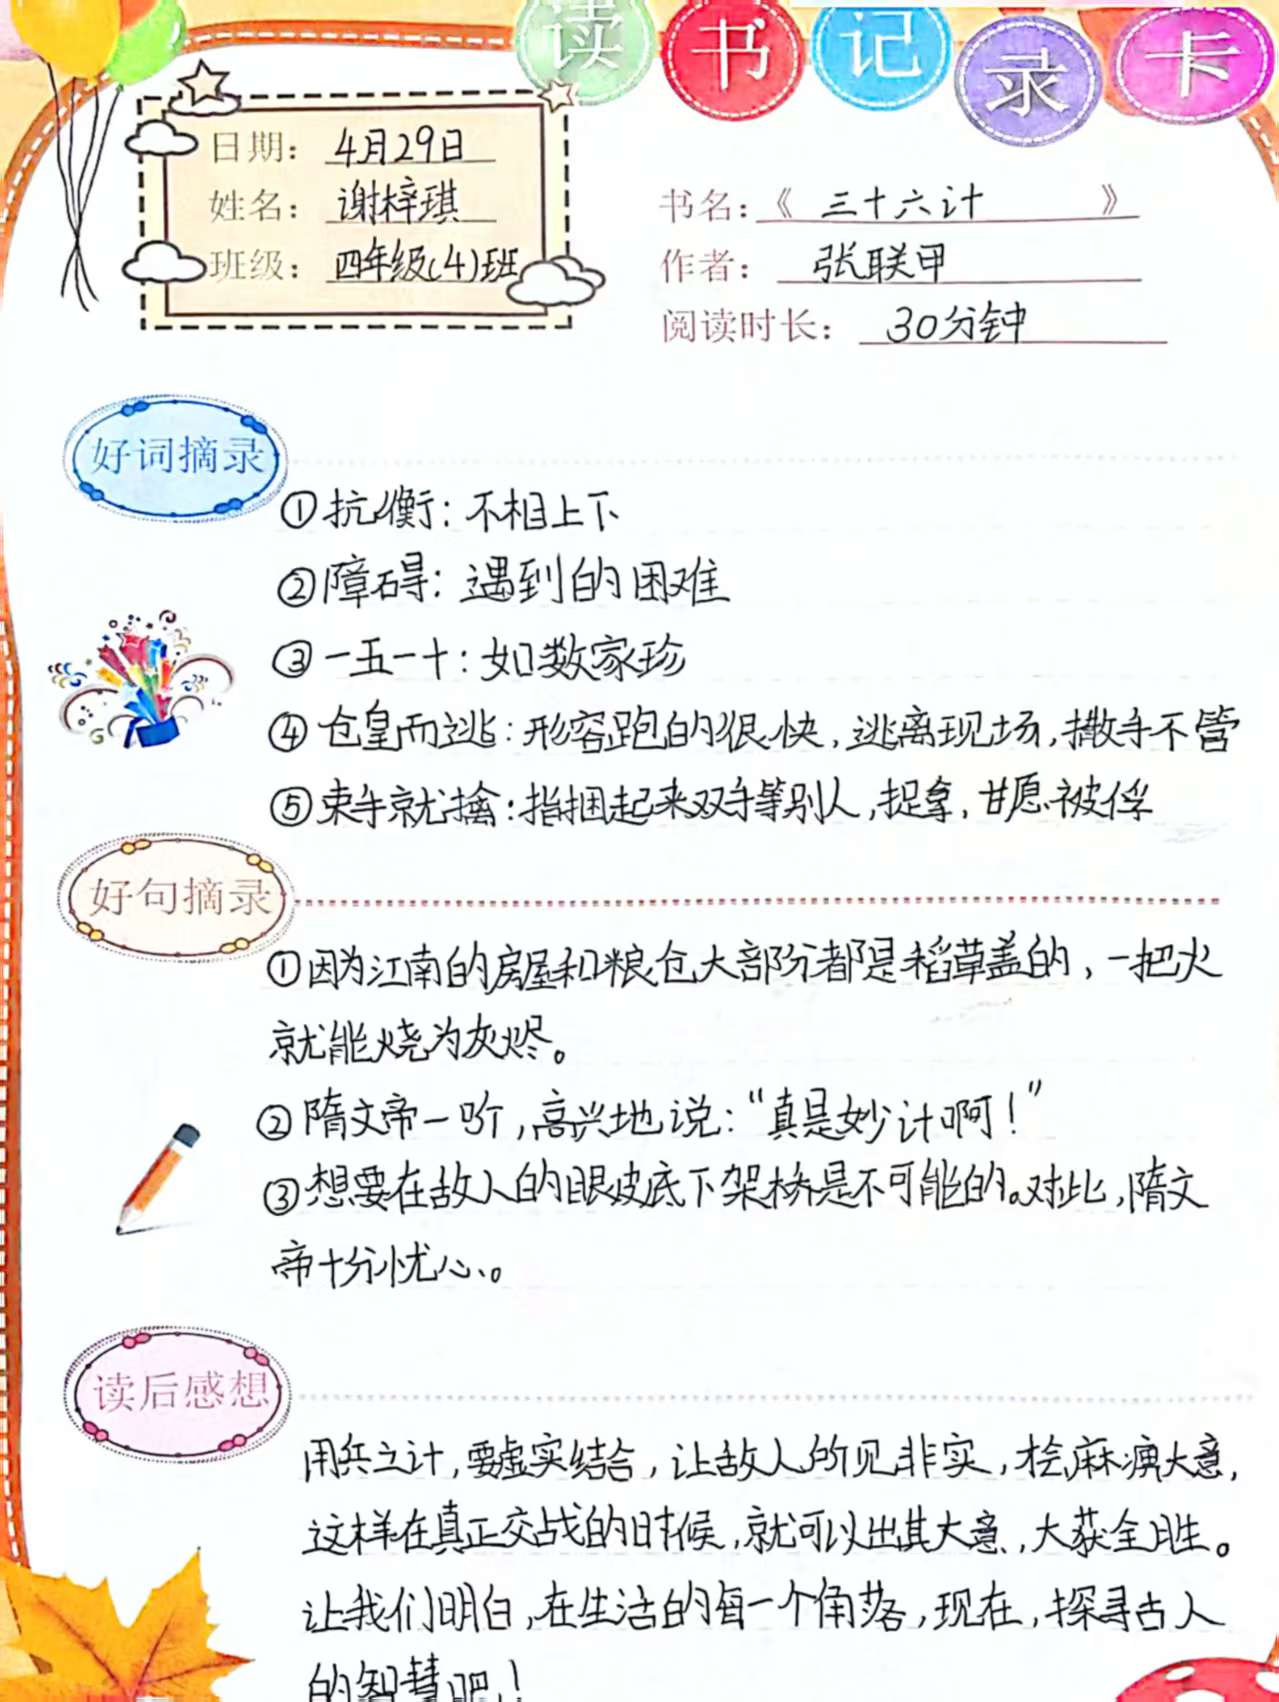 读书记录卡
日期：4月29日
姓名：谢梓琪
班级：四年级(4)班
书名：《三十六计》
作者：张联甲
阅读时长：30分钟
好词摘录
①抗衡：不相上下
②障碍：遇到的困难
③一五一十：如数家珍
④仓皇而逃：形容跑的很快，逃离现场，撒手不管
⑤束手就擒：指捆起来双手等别人，捉拿，甘愿被俘
好句摘录
①因为江南的房屋和粮仓大部分都是稻草盖的，一把火
就能烧为灰烬。
②隋文帝一听，高兴地说：“真是妙计啊！”
③想要在故人的眼皮底下架桥是不可能的。对此，隋文
帝十分忧心。
读后感想
用兵之计，要虚实结合，让故人所见非实，麻痹大意，
这样在真正交战的时候，就可以出其大意，大获全胜。
让我们明白，在生活的每一个角落，现在，探寻古人
的智慧吧！